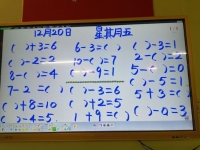 12月20日 星其月五
( )+3=6 6-3=( ) ( )-3=1
( )-2=2 10-( )=7 ( )-2=( )
8-( )=4 ( )-9=1 5-( )=0
7-2=( ) ( )-3=6 ( )-5=1
( )+8=10 ( )+2=5 5+3=( )
( )-4=5 1+9=( ) ( )-0=3